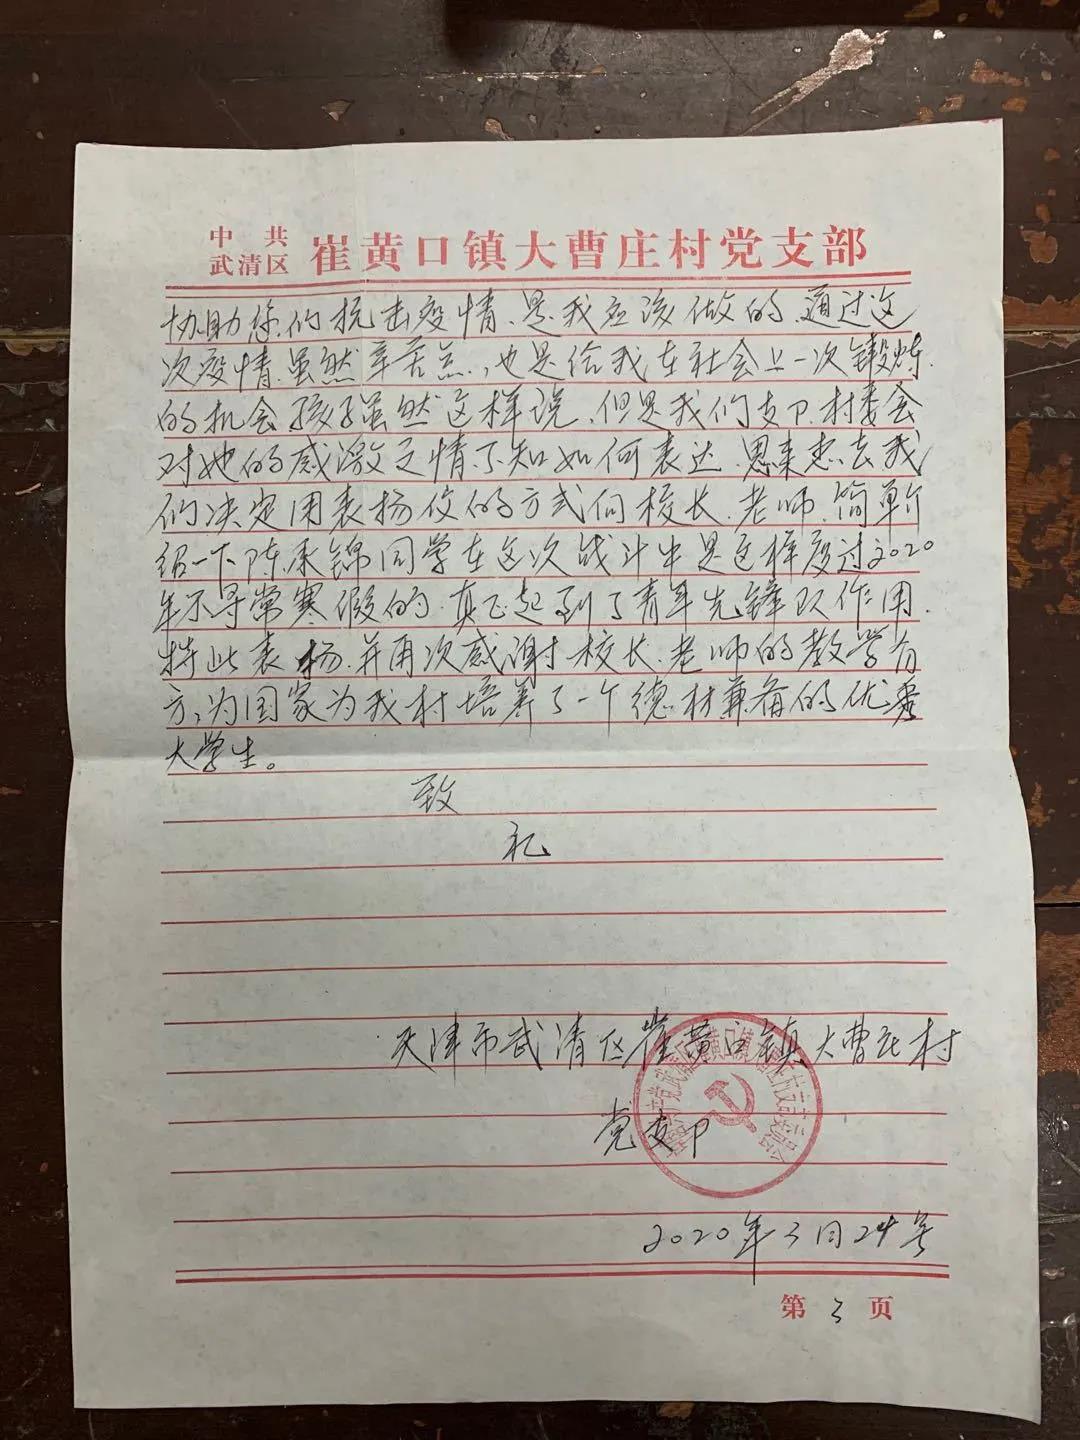 中共
武清区 崔黄口镇大曹庄村党支部
协助您们抗击疫情、是我应该做的、通过这
次疫情虽然辛苦点,也是给我在社会上一次锻炼
的机会孩子虽然这样说、但是我们支卩、村委会
对她的感激之情不知如何表达、思来想去我
们决定用表扬信的方式向校长、老师、简单介
绍一下陈禾锦同学在这次战斗中是这样度过2020
年不寻常寒假的、真正起到了青年先锋队作用、
特此表扬、并再次感谢校长、老师的教学有
方,为国家为我村培养了一个德材兼备的优秀
大学生。
致
礼
天津市武清区崔黄口镇大曹庄村
党支卩
2020年3月24号
第 3 页